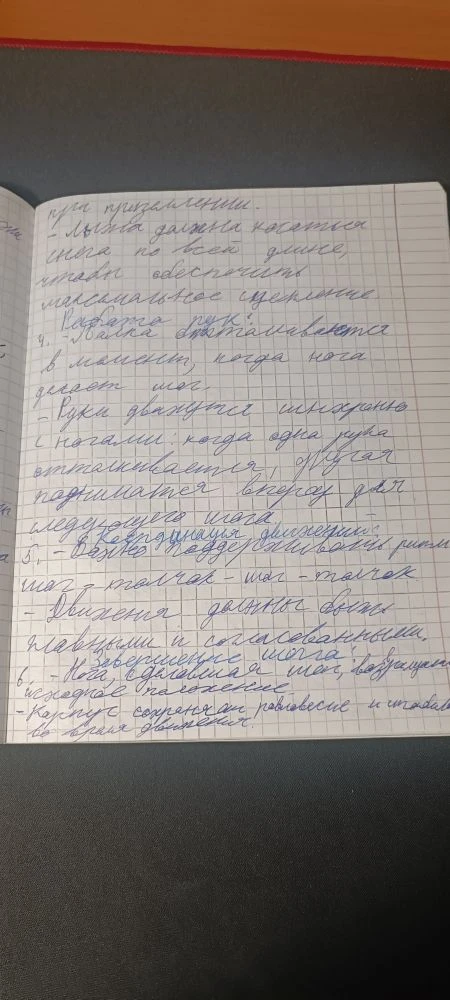 при приземлении.
- Лыжа должна касаться
снега по всей длине,
чтобы обеспечить
максимальное сцепление.
Работа рук:
4. - Палка отталкивается
в момент, когда нога
делает шаг.
- Руки движутся синхронно
с ногами: когда одна рука
отталкивается, другая
поднимается вперед для
следующего шага
Координация движений:
5. - Важно поддерживать ритм
шаг - толчок - шаг - толчок
- Движения должны быть
плавными и согласованными.
Завершение шага:
6. - Нога, сделавшая шаг, возвращает
исходное положение
- Корпус сохраняет равновесие и
во время движения.